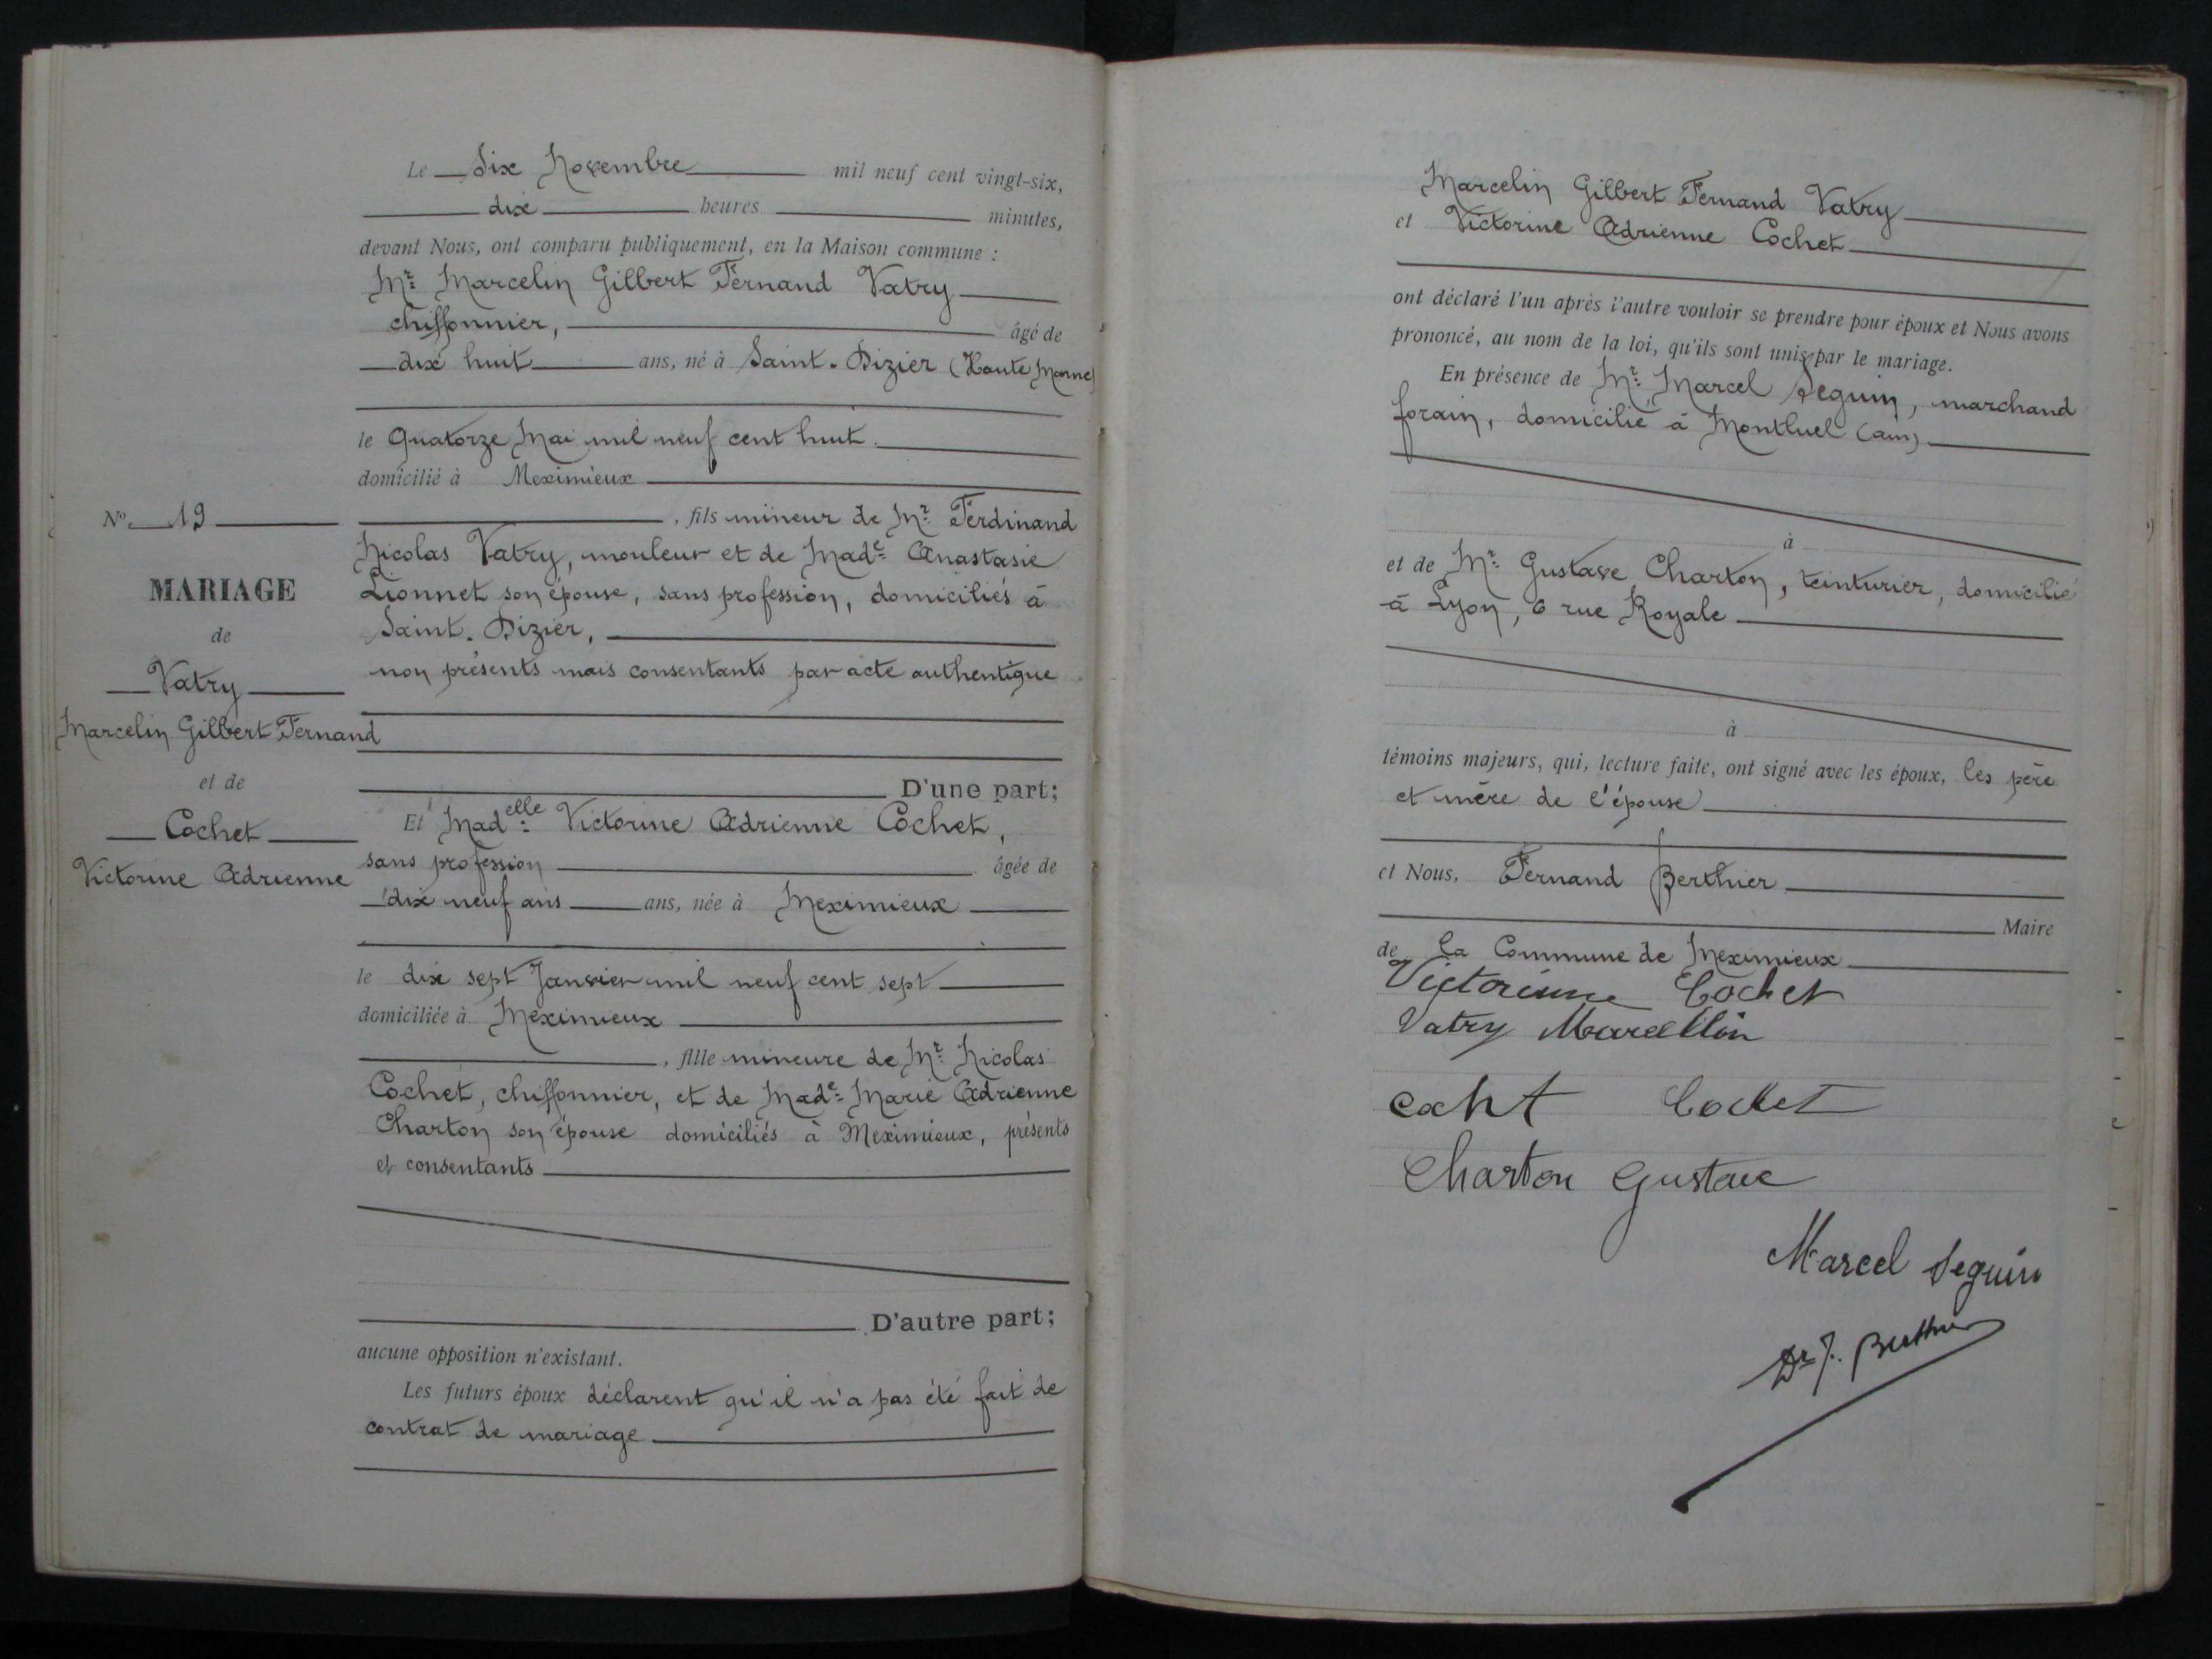 Le Six Novembre mil neuf cent vingt-six,
dix heures minutes,
devant Nous, ont comparu publiquement, en la Maison commune :
Mr Marcelin Gilbert Fernand Vatry
chiffonnier, âgé de
dix huit ans, né à Saint-Dizier (Haute Marne)
le Quatorze Mai mil neuf cent huit
domicilié à Meximieux
, fils mineur de Mr Ferdinand
Nicolas Vatry, mouleur et de Made Anastasie
Lionnet son épouse, sans profession, domiciliés à
Saint-Dizier,
non présents mais consentants par acte authentique
D'une part;
Et Madelle Victorine Adrienne Cochet,
sans profession âgée de
dix neuf ans ans, née à Meximieux
le dix sept Janvier mil neuf cent sept
domiciliée à Meximieux
, fille mineure de Mr Nicolas
Cochet, chiffonnier, et de Made Marie Adrienne
Charton son épouse domiciliés à Meximieux, présents
et consentants
D'autre part;
aucune opposition n'existant.
Les futurs époux déclarent qu'il n'a pas été fait de
contrat de mariage
No 19
MARIAGE
de
Vatry
Marcelin Gilbert Fernand
et de
Cochet
Victorine Adrienne
Marcelin Gilbert Fernand Vatry
et Victorine Adrienne Cochet
ont déclaré l'un après l'autre vouloir se prendre pour époux et Nous avons
prononcé, au nom de la loi, qu'ils sont unis par le mariage.
En présence de Mr Marcel Seguin, marchand
forain, domicilié à Montluel (ain)
à
et de Mr Gustave Charton, teinturier, domicilié
à Lyon, 6 rue Royale
à
témoins majeurs, qui, lecture faite, ont signé avec les époux, les père
et mère de l'épouse
et Nous, Fernand Berthier
Maire
de la Commune de Meximieux
Victorinne Cochet
Vatry Marcellin
cocht Cochet
Charton Gustave
Marcel Seguin
Dr F. Berthier